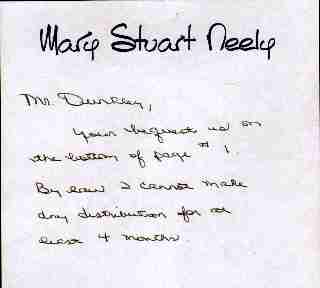 Mary Stuart Neely
Mr. Dunkley,
Your bequest is on
the bottom of page #1.
By law I cannot make
any distribution for at
least 4 months.